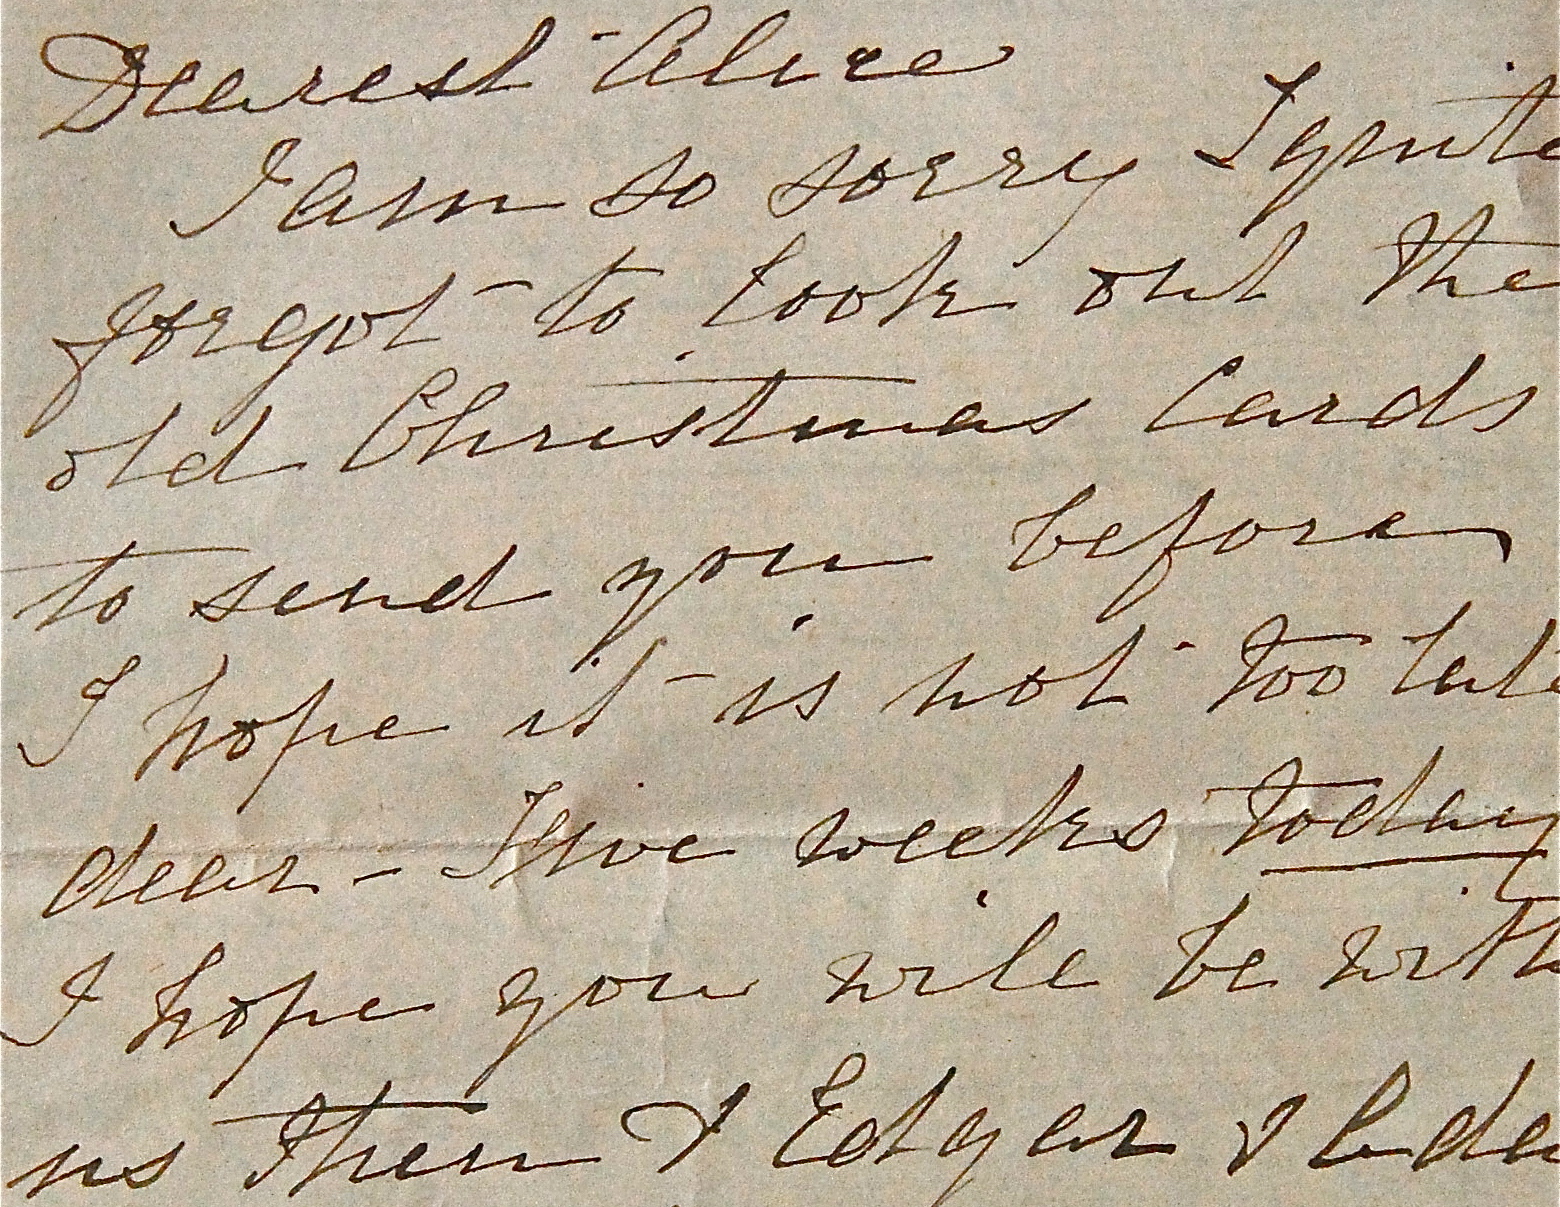 Dearest Alice
I am so sorry I quite
forgot to look out the
old Christmas Cards
to send you before
I hope it is not too late
dear - Five weeks today
I hope you will be with
us then & Edgar &